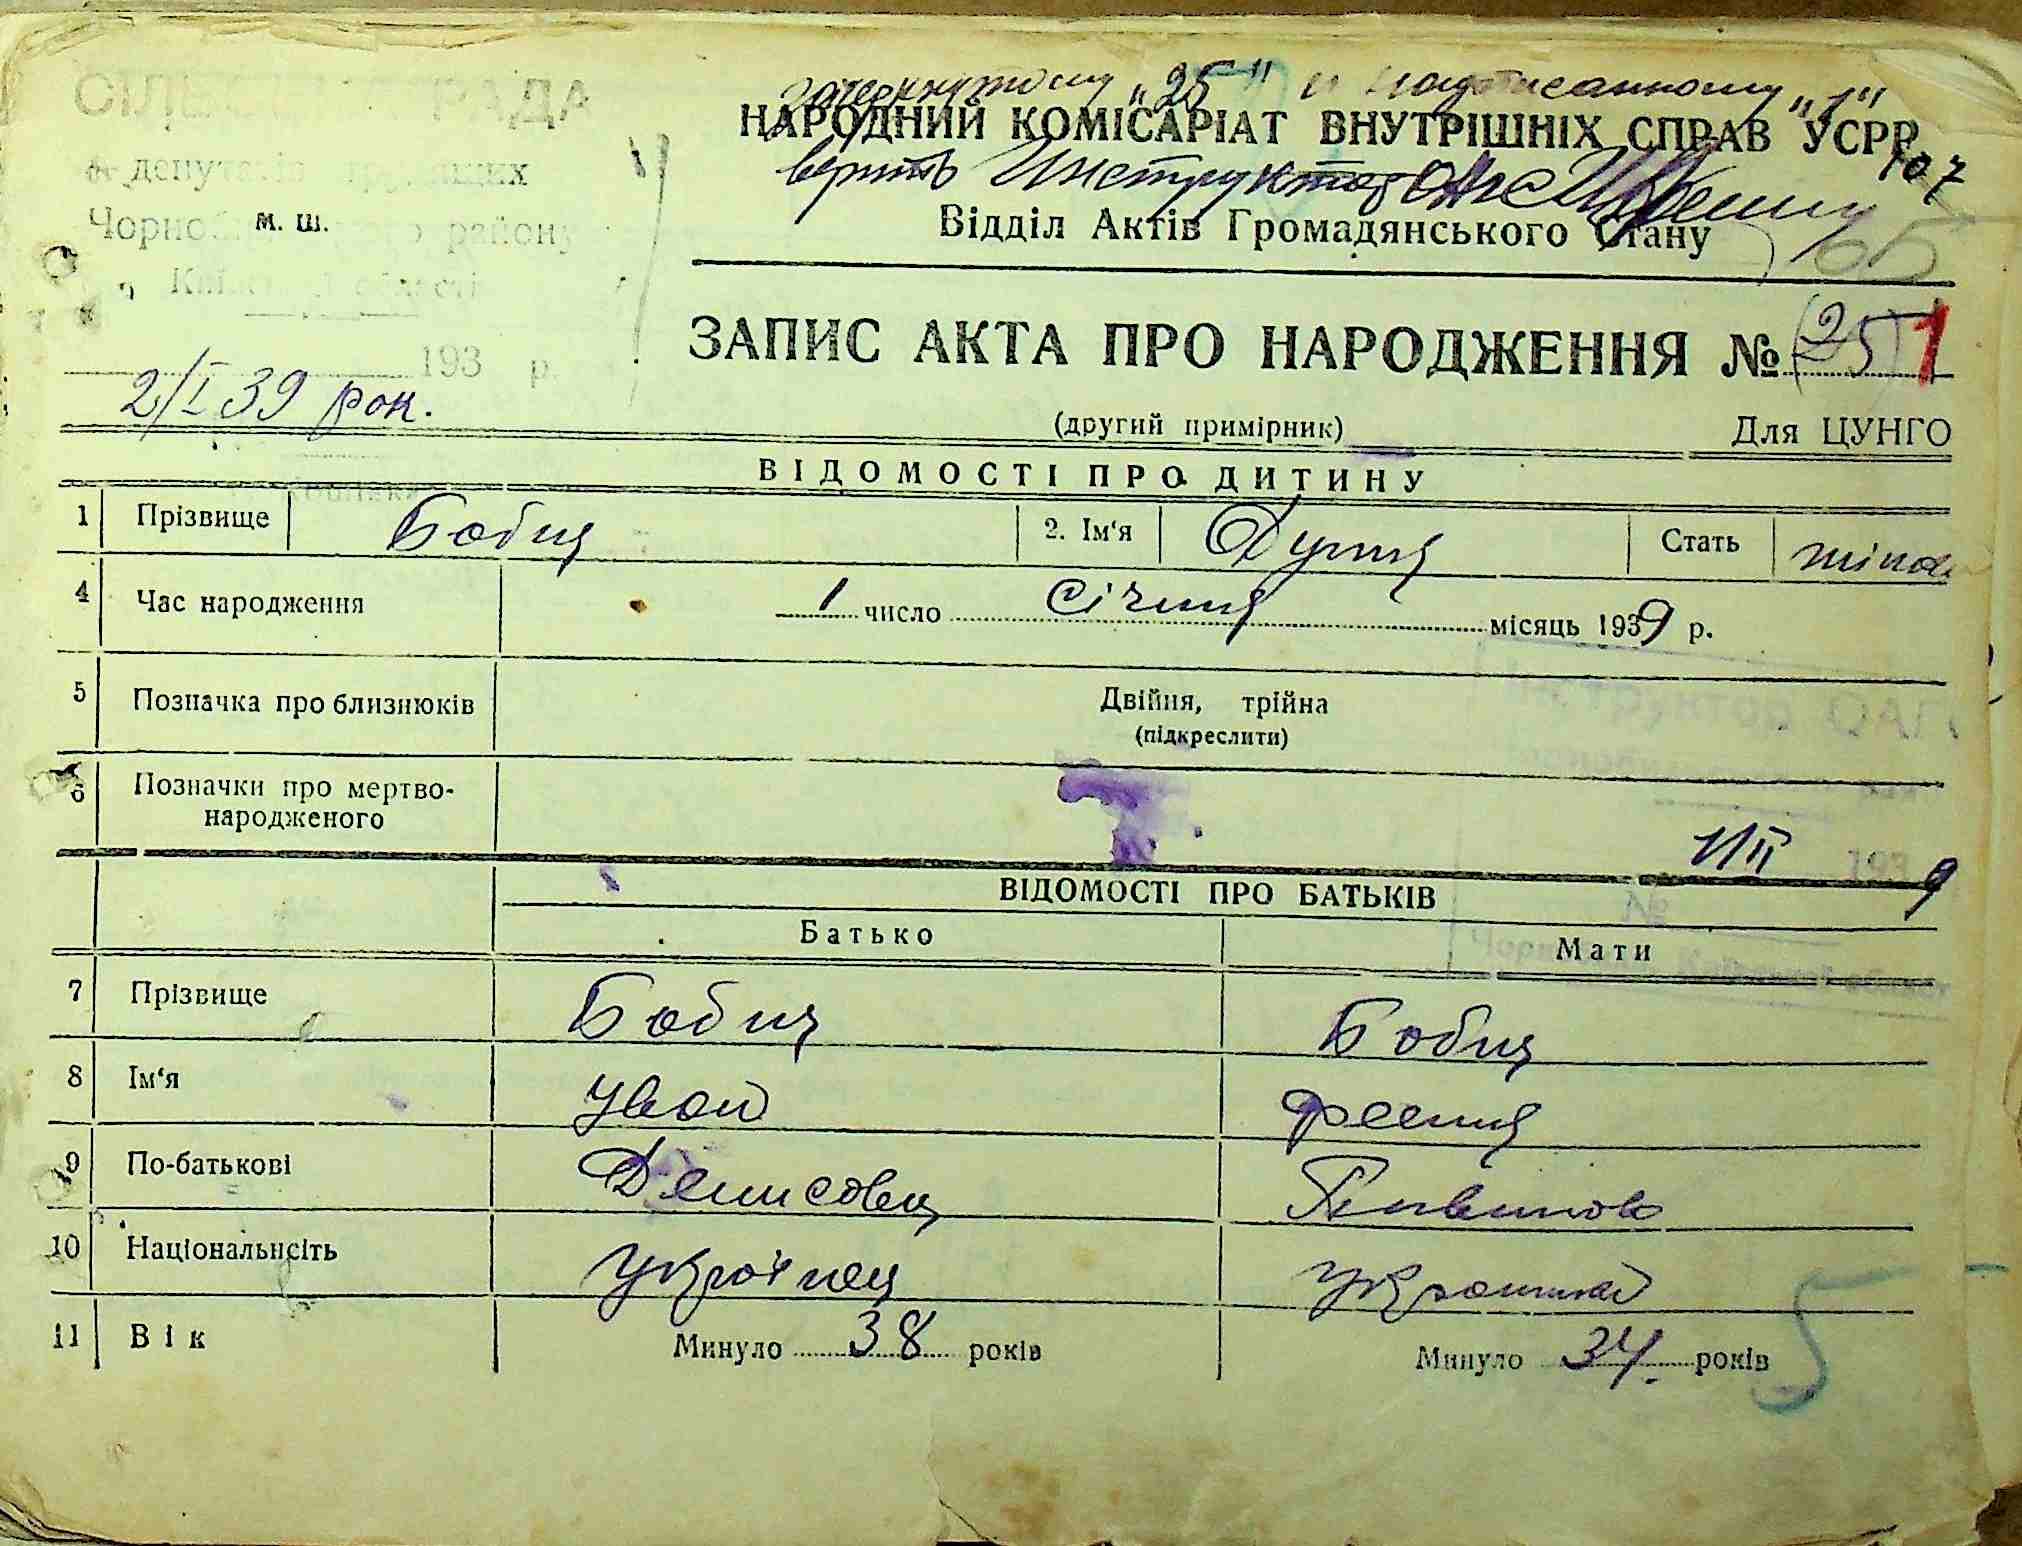 РАДА
депутатів трудящих
Чорнобильського району
м. ш.
Київської області
193 р.
2/I 39 рок.
зачеркнутому „25" и надписанному „1"
НАРОДНИЙ КОМІСАРІАТ ВНУТРІШНІХ СПРАВ УСРР
верить Инструктор
107
Відділ Актів Громадянського Стану
65
ЗАПИС АКТА ПРО НАРОДЖЕННЯ № (25) 1
(другий примірник) Для ЦУНГО
ВІДОМОСТІ ПРО ДИТИНУ
1 Прізвище Бобця 2. Ім'я Дуння Стать жіноч
4 Час народження 1 число січння місяць 1939 р.
5 Позначка про близнюків Двійня, трійна
(підкреслити)
Інструктор ОАГС
6 Позначки про мертво-
народженого
1/II 1939
№
ВІДОМОСТІ ПРО БАТЬКІВ
Батько Мати
7 Прізвище Бобця Бобця
8 Ім'я
9 По-батькові Денисовец
10 Національність Українец Украинка
11 Вік Минуло 38 років Минуло 34. років
5